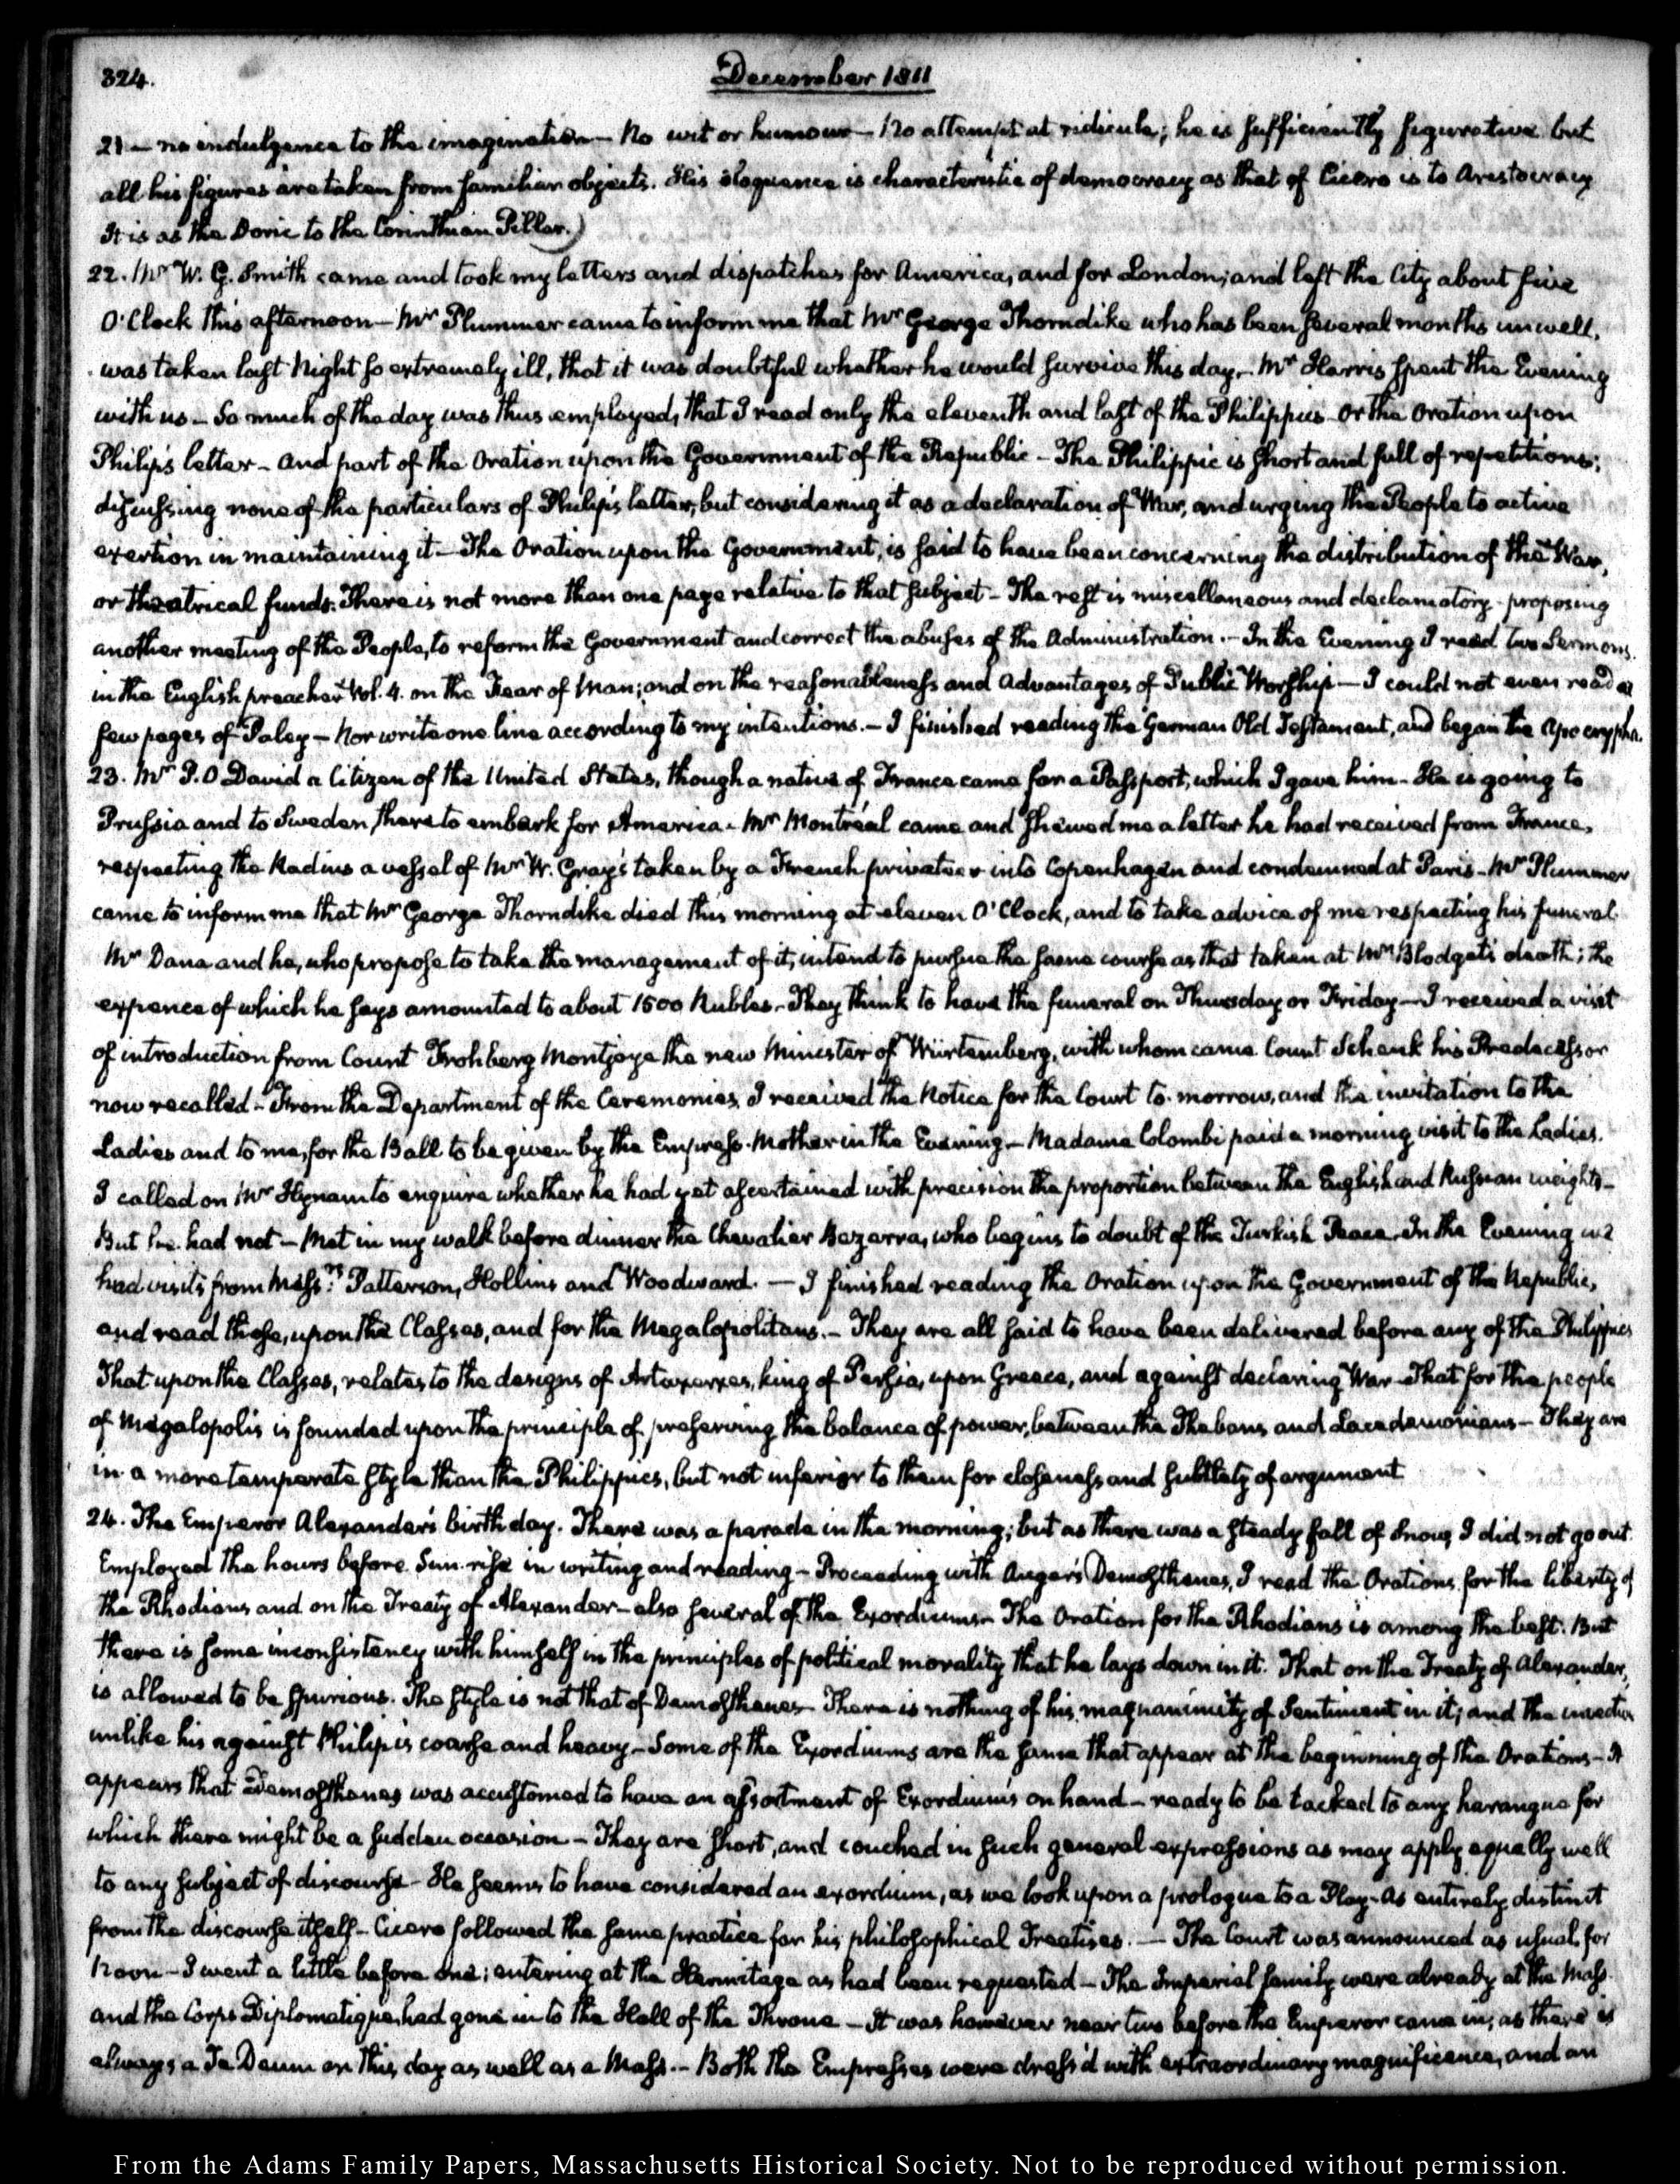 324.
December 1811
21 — no indulgence to the imagination — No wit or humour — No attempt at ridicule; he is sufficiently figurative but
all his figures are taken from familiar objects. His eloquence is characteristic of democracy as that of Cicero is to Aristocracy
It is as the Doric to the Corinthian Pillar.)
22. Mr W. G. Smith came and took my letters and dispatches for America, and for London; and left the City about five
O'Clock this afternoon — Mr Plummer came to inform me that Mr George Thorndike who has been several months unwell,
was taken last Night so extremely ill, that it was doubtful whether he would survive this day. Mr Harris spent the Evening
with us — So much of the day was thus employed, that I read only the eleventh and last of the Philippics — Or the Oration upon
Philip's letter — and part of the Oration upon the Government of the Republic — The Philippic is short and full of repetitions;
discussing none of the particulars of Philip's letter, but considering it as a declaration of War, and urging the People to active
exertion in maintaining it — The Oration upon the Government, is said to have been concerning the distribution of the War,
or theatrical funds. There is not more than one page relative to that subject — The rest is miscellaneous and declamatory — proposing
another meeting of the People, to reform the Government and correct the abuses of the Administration. — In the Evening I read two Sermons
in the English preacher Vol. 4. on the Fear of Man; and on the reasonableness and Advantages of Public Worship — I could not even read a
few pages of Paley — Nor write one line according to my intentions. — I finished reading the German Old Testament, and began the Apocrypha.
23. Mr P. O David a Citizen of the United States, though a native of France came for a Passport, which I gave him — He is going to
Prussia and to Sweden, there to embark for America. Mr Montréal came and shewed me a letter he had received from France,
respecting the Radius a vessel of Mr W. Gray's taken by a French privateer into Copenhagen and condemned at Paris — Mr Plummer
came to inform me that Mr George Thorndike died this morning at eleven O'Clock, and to take advice of me respecting his funeral
Mr Dana and he, who propose to take the management of it, intend to pursue the same course as that taken at Mr Blodget's death; the
expence of which he says amounted to about 1500 Rubles. They think to have the funeral on Thursday or Friday — I received a visit
of introduction from Count Frohberg Montjoye the new Minister of Würtemberg, with whom came Count Schenk his Predecessor
now recalled — From the Department of the Ceremonies I received the Notice for the Court to-morrow, and the invitation to the
Ladies and to me, for the Ball to be given by the Empress-Mother in the Evening — Madame Colombi paid a morning visit to the Ladies.
I called on Mr Hynam to enquire whether he had yet ascertained with precision the proportion between the English and Russian weights —
But he had not — Met in my walk before dinner the Chevalier Bezerra, who begins to doubt of the Turkish Peace. In the Evening we
had visits from Messrs Patterson, Hollins and Woodward. — I finished reading the Oration upon the Government of the Republic,
and read those, upon the Classes, and for the Megalopolitans. — They are all said to have been delivered before any of the Philippics
That upon the Classes, relates to the designs of Artaxerxes, king of Persia, upon Greece, and against declaring War — That for the people
of Megalopolis is founded upon the principle of preserving the balance of power, between the Thebans and Lacedemonians — They are
in a more temperate style than the Philippics, but not inferior to them for closeness and subtlety of argument
24. The Emperor Alexander's birth day. There was a parade in the morning; but as there was a steady fall of Snow, I did not go out.
Employed the hours before Sun-rise in writing and reading — Proceeding with Auger's Demosthenes, I read the Orations for the liberty of
the Rhodians and on the Treaty of Alexander — also several of the Exordiums — The Oration for the Rhodians is among the best. But
there is some inconsistency with himself in the principles of political morality that he lays down in it. That on the Treaty of Alexander,
is allowed to be spurious. The style is not that of Demosthenes — There is nothing of his magnanimity of Sentiment in it; and the invective
unlike his against Philip is coarse and heavy — Some of the Exordiums are the same that appear at the beginning of the Orations — It
appears that Demosthenes was accustomed to have an assortment of Exordiums on hand — ready to be tacked to any harangue for
which there might be a sudden occasion — They are short, and couched in such general expressions as may apply equally well
to any subject of discourse — He seems to have considered an exordium, as we look upon a prologue to a Play. As entirely distinct
from the discourse itself — Cicero followed the same practice for his philosophical Treatises. — The Court was announced as usual for
Noon — I went a little before one; entering at the Hermitage as had been requested — The Imperial family were already at the Mass
and the Corps Diplomatique, had gone in to the Hall of the Throne — It was however near two before the Emperor came in; as there is
always a Te Deum on this day as well as a Mass. — Both the Empresses were dress'd with extraordinary magnificence, and an
From the Adams Family Papers, Massachusetts Historical Society. Not to be reproduced without permission.